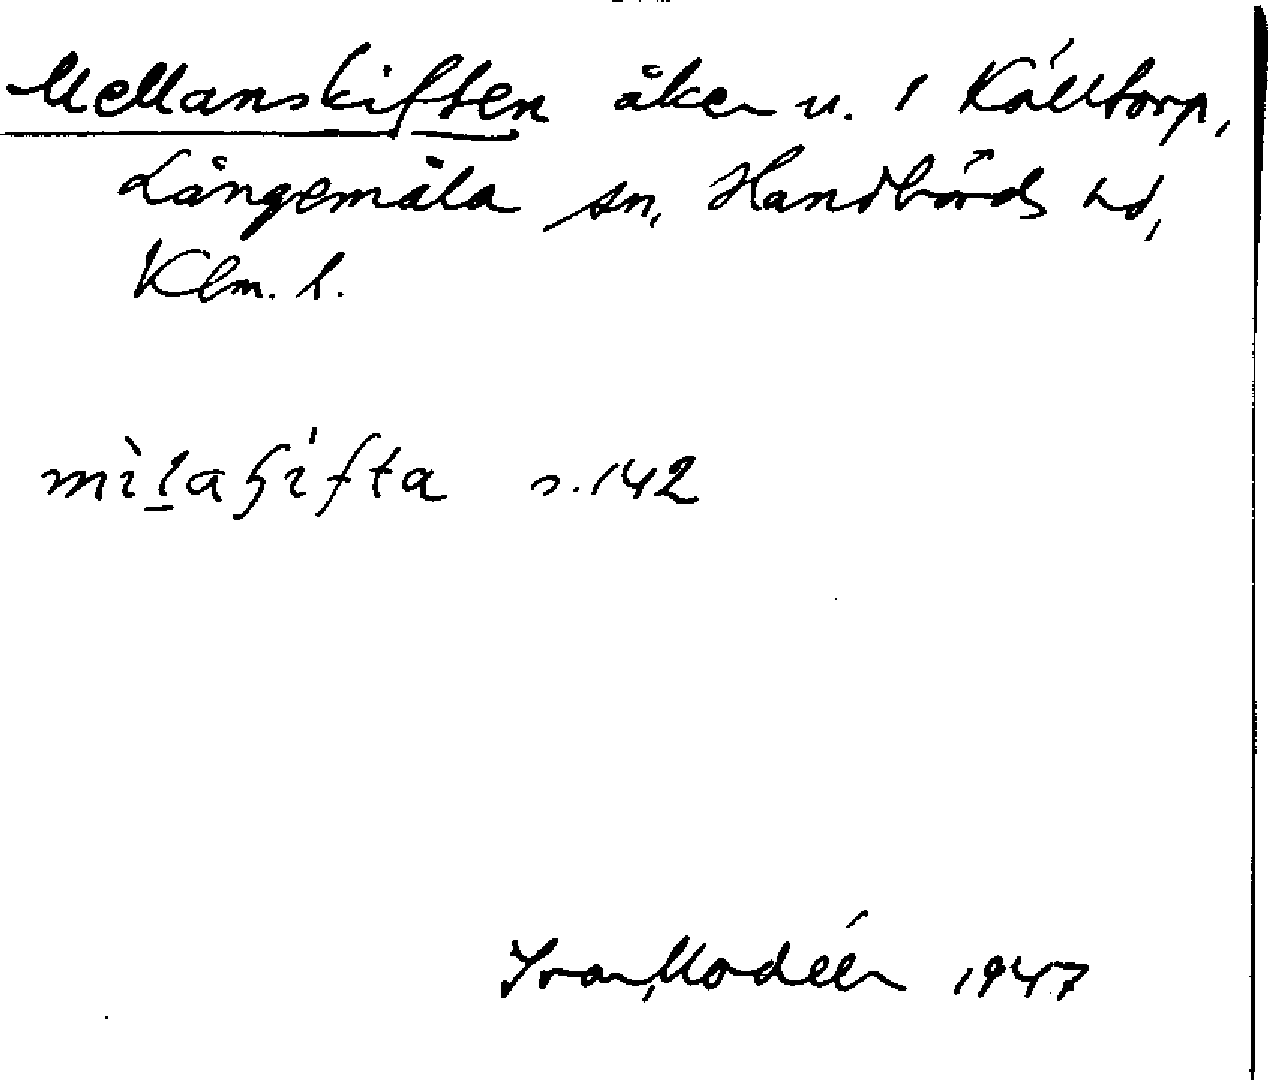 Mellanskiften åker u. 1 Källtorp,
Långemåla sn, Handbörds hd,
Klm. l.
mìlaʂifta s. 142
Ivar Modéer 1947